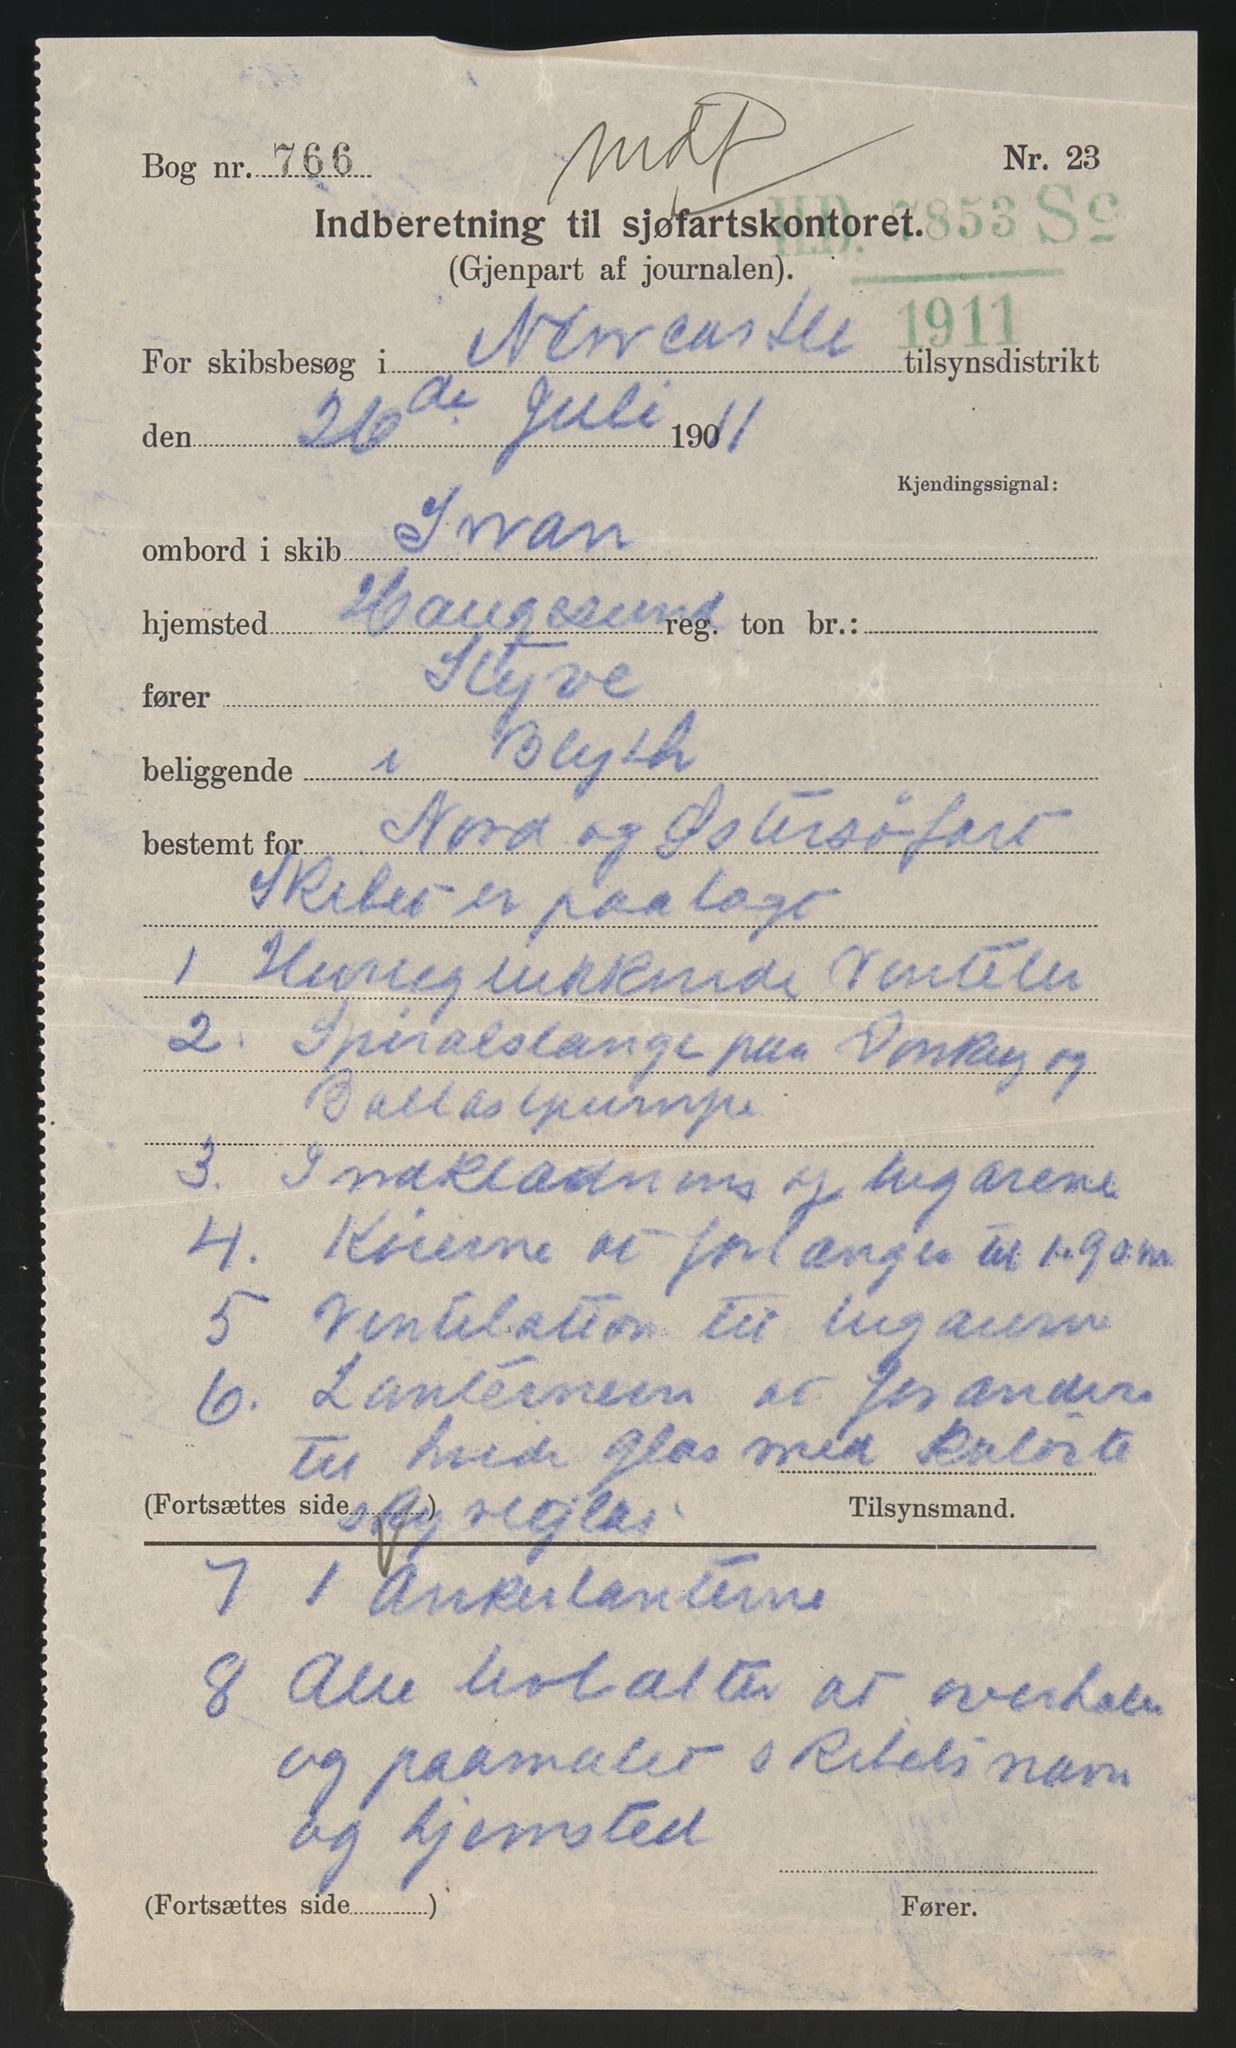 Bog nr. 766
Nr. 23
H.D. 7853 Sc
1911
Indberetning til sjøfartskontoret.
(Gjenpart af journalen).
For skibsbesøg i Newcastle tilsynsdistrikt
den 26de Juli 1911
Kjendingssignal:
ombord i skib Swan
hjemsted Haugesund reg. ton br.:
fører Styve
beliggende i Blyth
bestemt for Nord og Østersöfart
Skibet er paalagt
1 Ventiler
2. Spiralslange paa Donkey og
Ballastpumpe
3. og lugarene
4. Köierne at forlænges til
5 Ventilation til lugarerne
6. Lanternerne at forandre
til hvide glas med kulörte
(Fortsættes side )
skyveglas
Tilsynsmand.
7 1 Ankerlanterne
8 Alle livbælter at overhales
og paamalet skibets navn
og hjemsted
(Fortsættes side )
Fører.